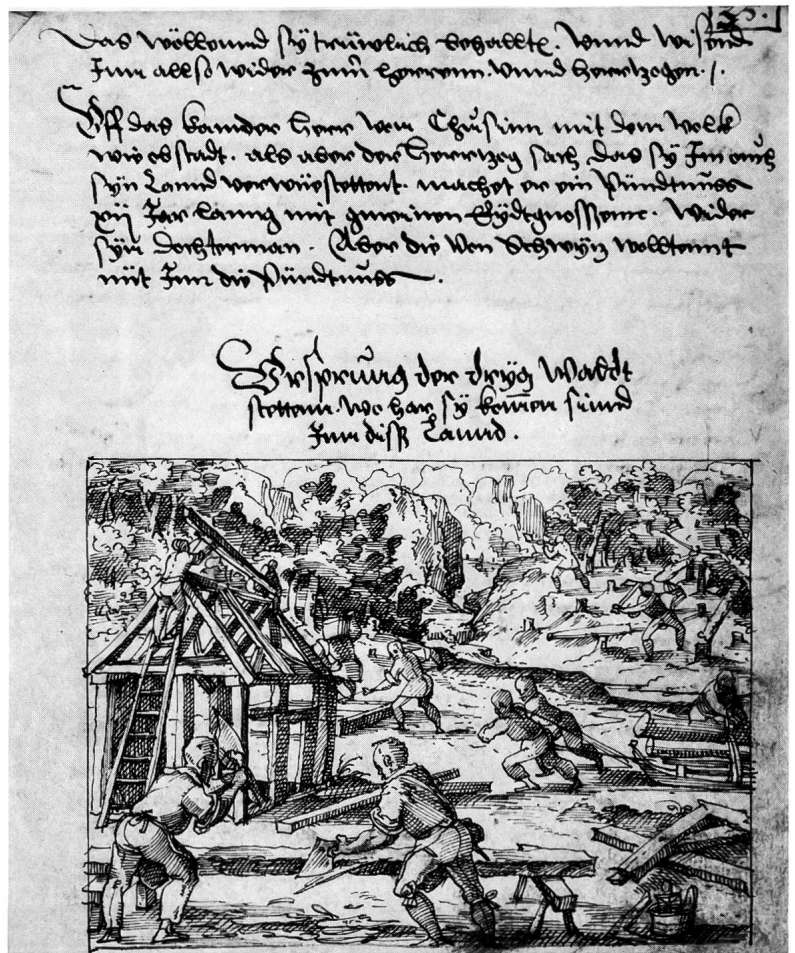 Das wöllennd sy trüwlich behallte. Vnnd wisend
Inn allso wider zum herrenn. vnnd hertzogen.
Vff das kam der herr von Chusinn mit dem volk
wie ob stadt. als aber der hertzog sach das sy Im ouch
syn Lannd verwüestettent. machet er ein Pündtnuss
xij Jar lanng mit gmeinen Eydtgnossenn. Wider
syn dochterman. Aber die von Schwyz wolltennt
nüt Inn die Pündtnuss.
Vrsprung der dryg Waldt
stettenn. wo har sy komen sinnd
Inn diss Lannd.